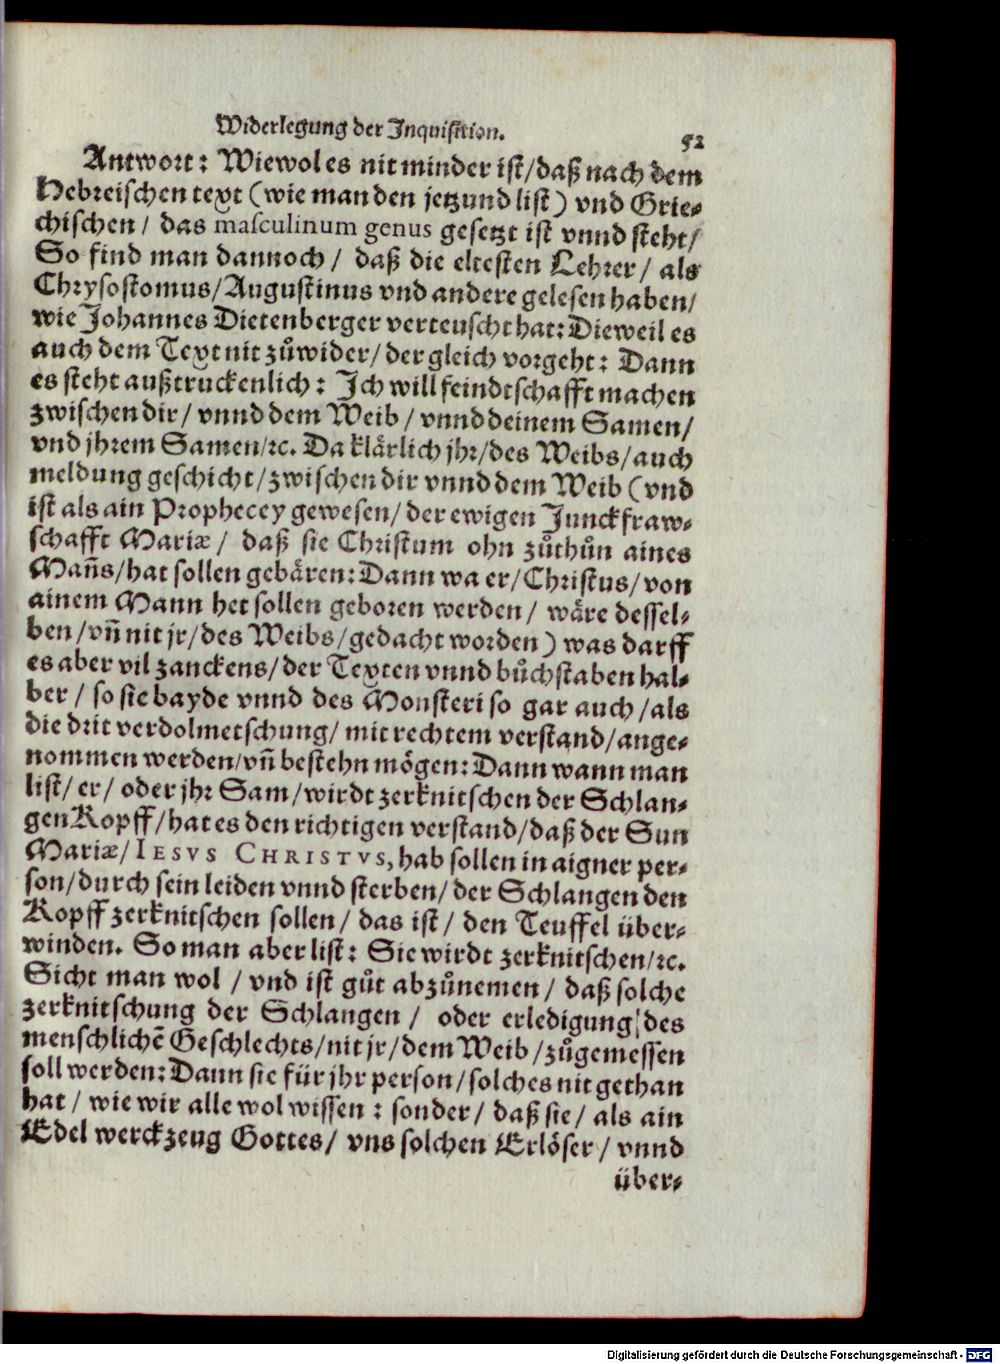 Widerlegung der Inquisition.
52
Antwort: Wiewol es nit minder ist/daß nach dem
Hebreischen text (wie man den jetzund list) vnd Grie-
chischen/ das masculinum genus gesetzt ist vnnd steht/
So find man dannoch/ daß die eltesten Lehrer/ als
Chrysostomus/Augustinus vnd andere gelesen haben/
wie Johannes Dietenberger verteuscht hat: Dieweil es
auch dem Text nit zůwider/der gleich vorgeht: Dann
es steht außtruckenlich: Ich will feindtschafft machen
zwischen dir/ vnnd dem Weib/ vnnd deinem Samen/
vnd jhrem Samen/ꝛc. Da klärlich jhr/des Weibs/auch
meldung geschicht/zwischen dir vnnd dem Weib (vnd
ist als ain Prophecey gewesen/der ewigen Junckfraw-
schafft Mariæ/ daß sie Christum ohn zůthůn aines
Mañs/hat sollen gebären: Dann wa er/Christus/von
ainem Mann het sollen geboren werden/ wäre dessel-
ben/vñ nit jr/des Weibs/gedacht worden) was darff
es aber vil zanckens/der Texten vnnd bůchstaben hal-
ber/ so sie bayde vnnd des Monsteri so gar auch/als
die drit verdolmetschung/ mit rechtem verstand/ange-
nommen werden/vñ bestehn mögen: Dann wann man
list/ er/ oder jhr Sam/wirdt zerknitschen der Schlan-
gen Kopff/hat es den richtigen verstand/daß der Sun
Mariæ/IESVS CHRISTVS, hab sollen in aigner per-
son/durch sein leiden vnnd sterben/der Schlangen den
Kopff zerknitschen sollen/ das ist/ den Teuffel über-
winden. So man aber list: Sie wirdt zerknitschen/ꝛc.
Sicht man wol/ vnd ist gůt abzůnemen/ daß solche
zerknitschung der Schlangen/ oder erledigung/des
menschlichẽ Geschlechts/nit jr/dem Weib/zůgemessen
soll werden: Dann sie für jhr person/solches nit gethan
hat/ wie wir alle wol wissen: sonder/ daß sie/ als ain
Edel werckzeug Gottes/ vns solchen Erlöser/ vnnd
über-
Digitalisierung gefördert durch die Deutsche Forschungsgemeinschaft - DFG